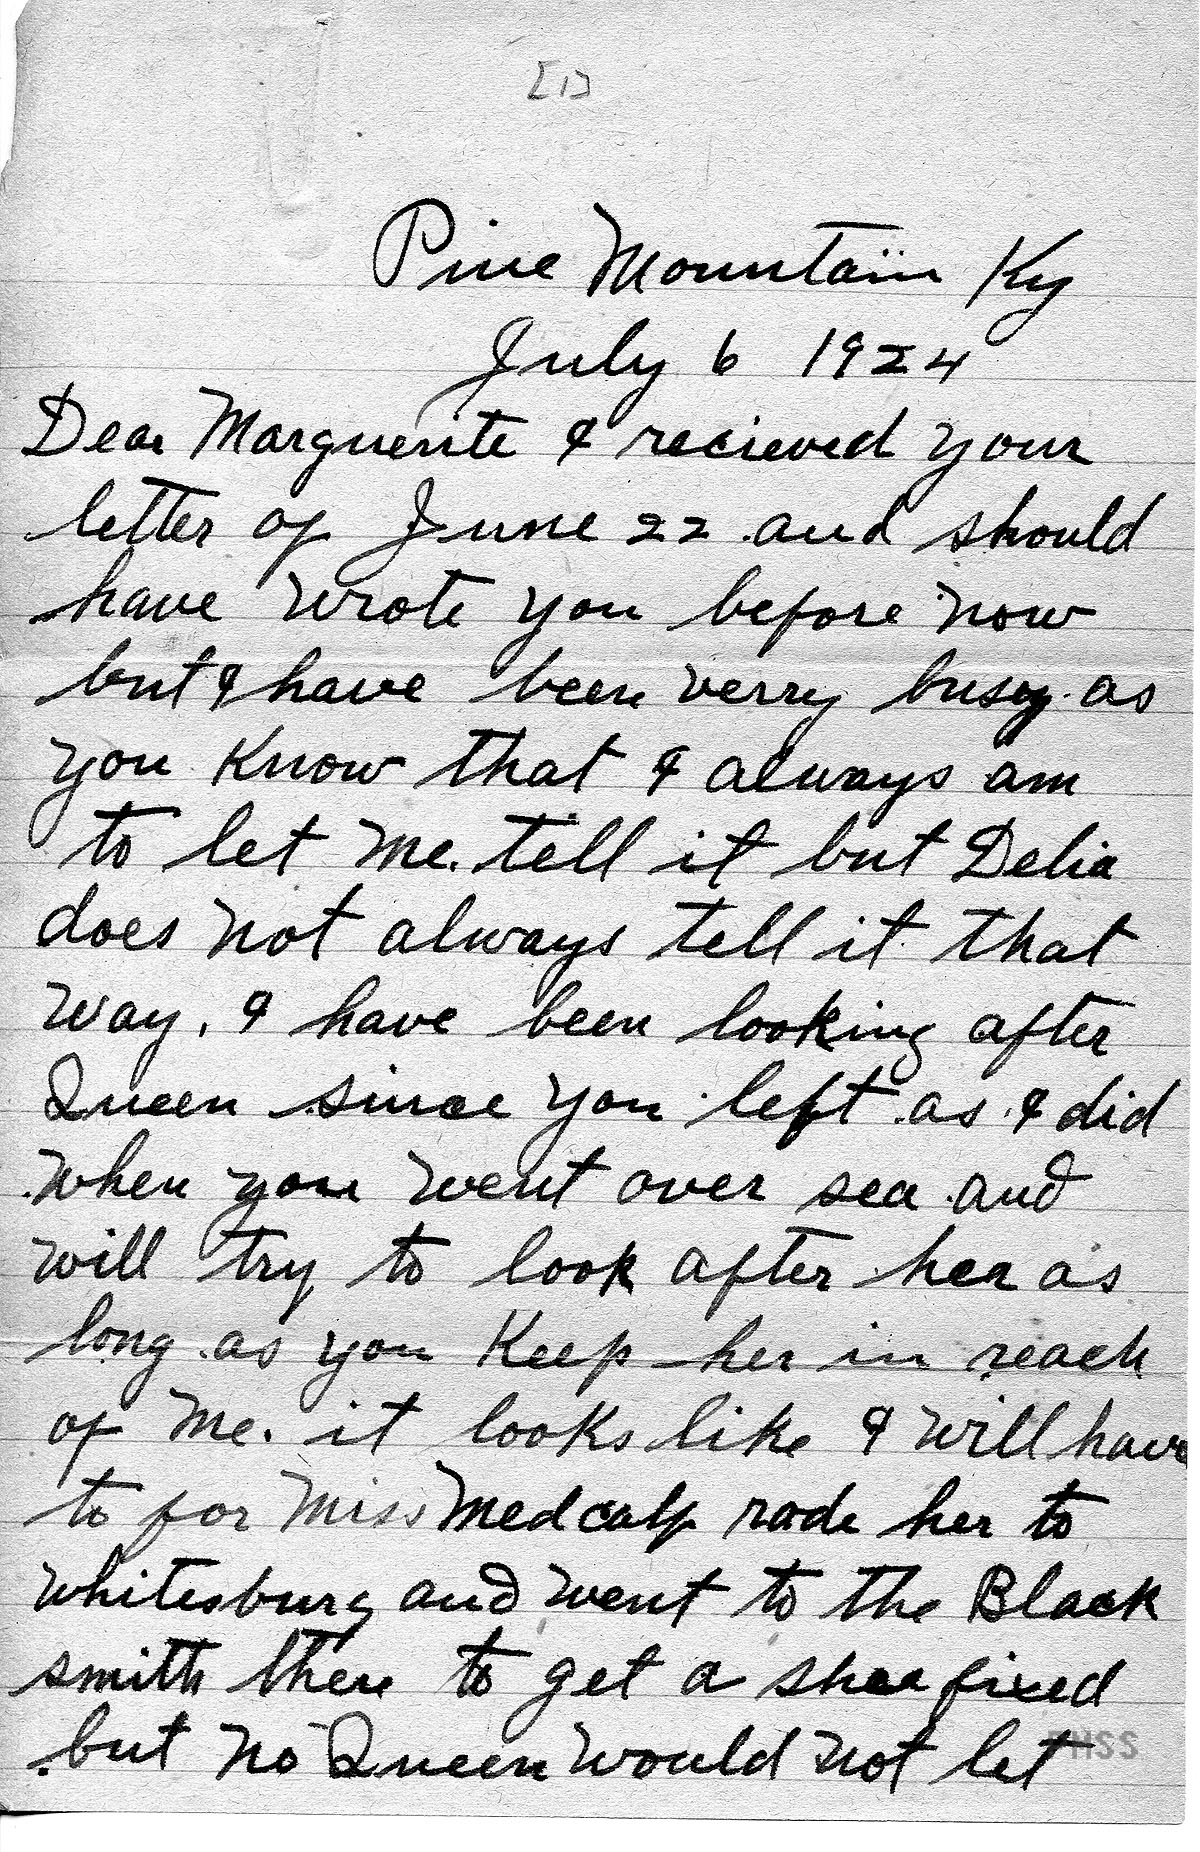 [1]
Pine Mountain Ky
July 6 1924
Dear Marguerite I recieved your
letter of June 22 and should
have wrote you before now
but I have been verry busy as
you Know that I always am
to let me. tell it but Delia
does not always tell it that
way. I have been looking after
Queen since you left as I did
when you went over sea and
will try to look after her as
long as you Keep her in reach
of me. it looks like I will have
to for Miss Medcalf rode her to
Whitesburg and went to the Black
smith there to get a shoe fixed
but no Queen would not let
PMSS